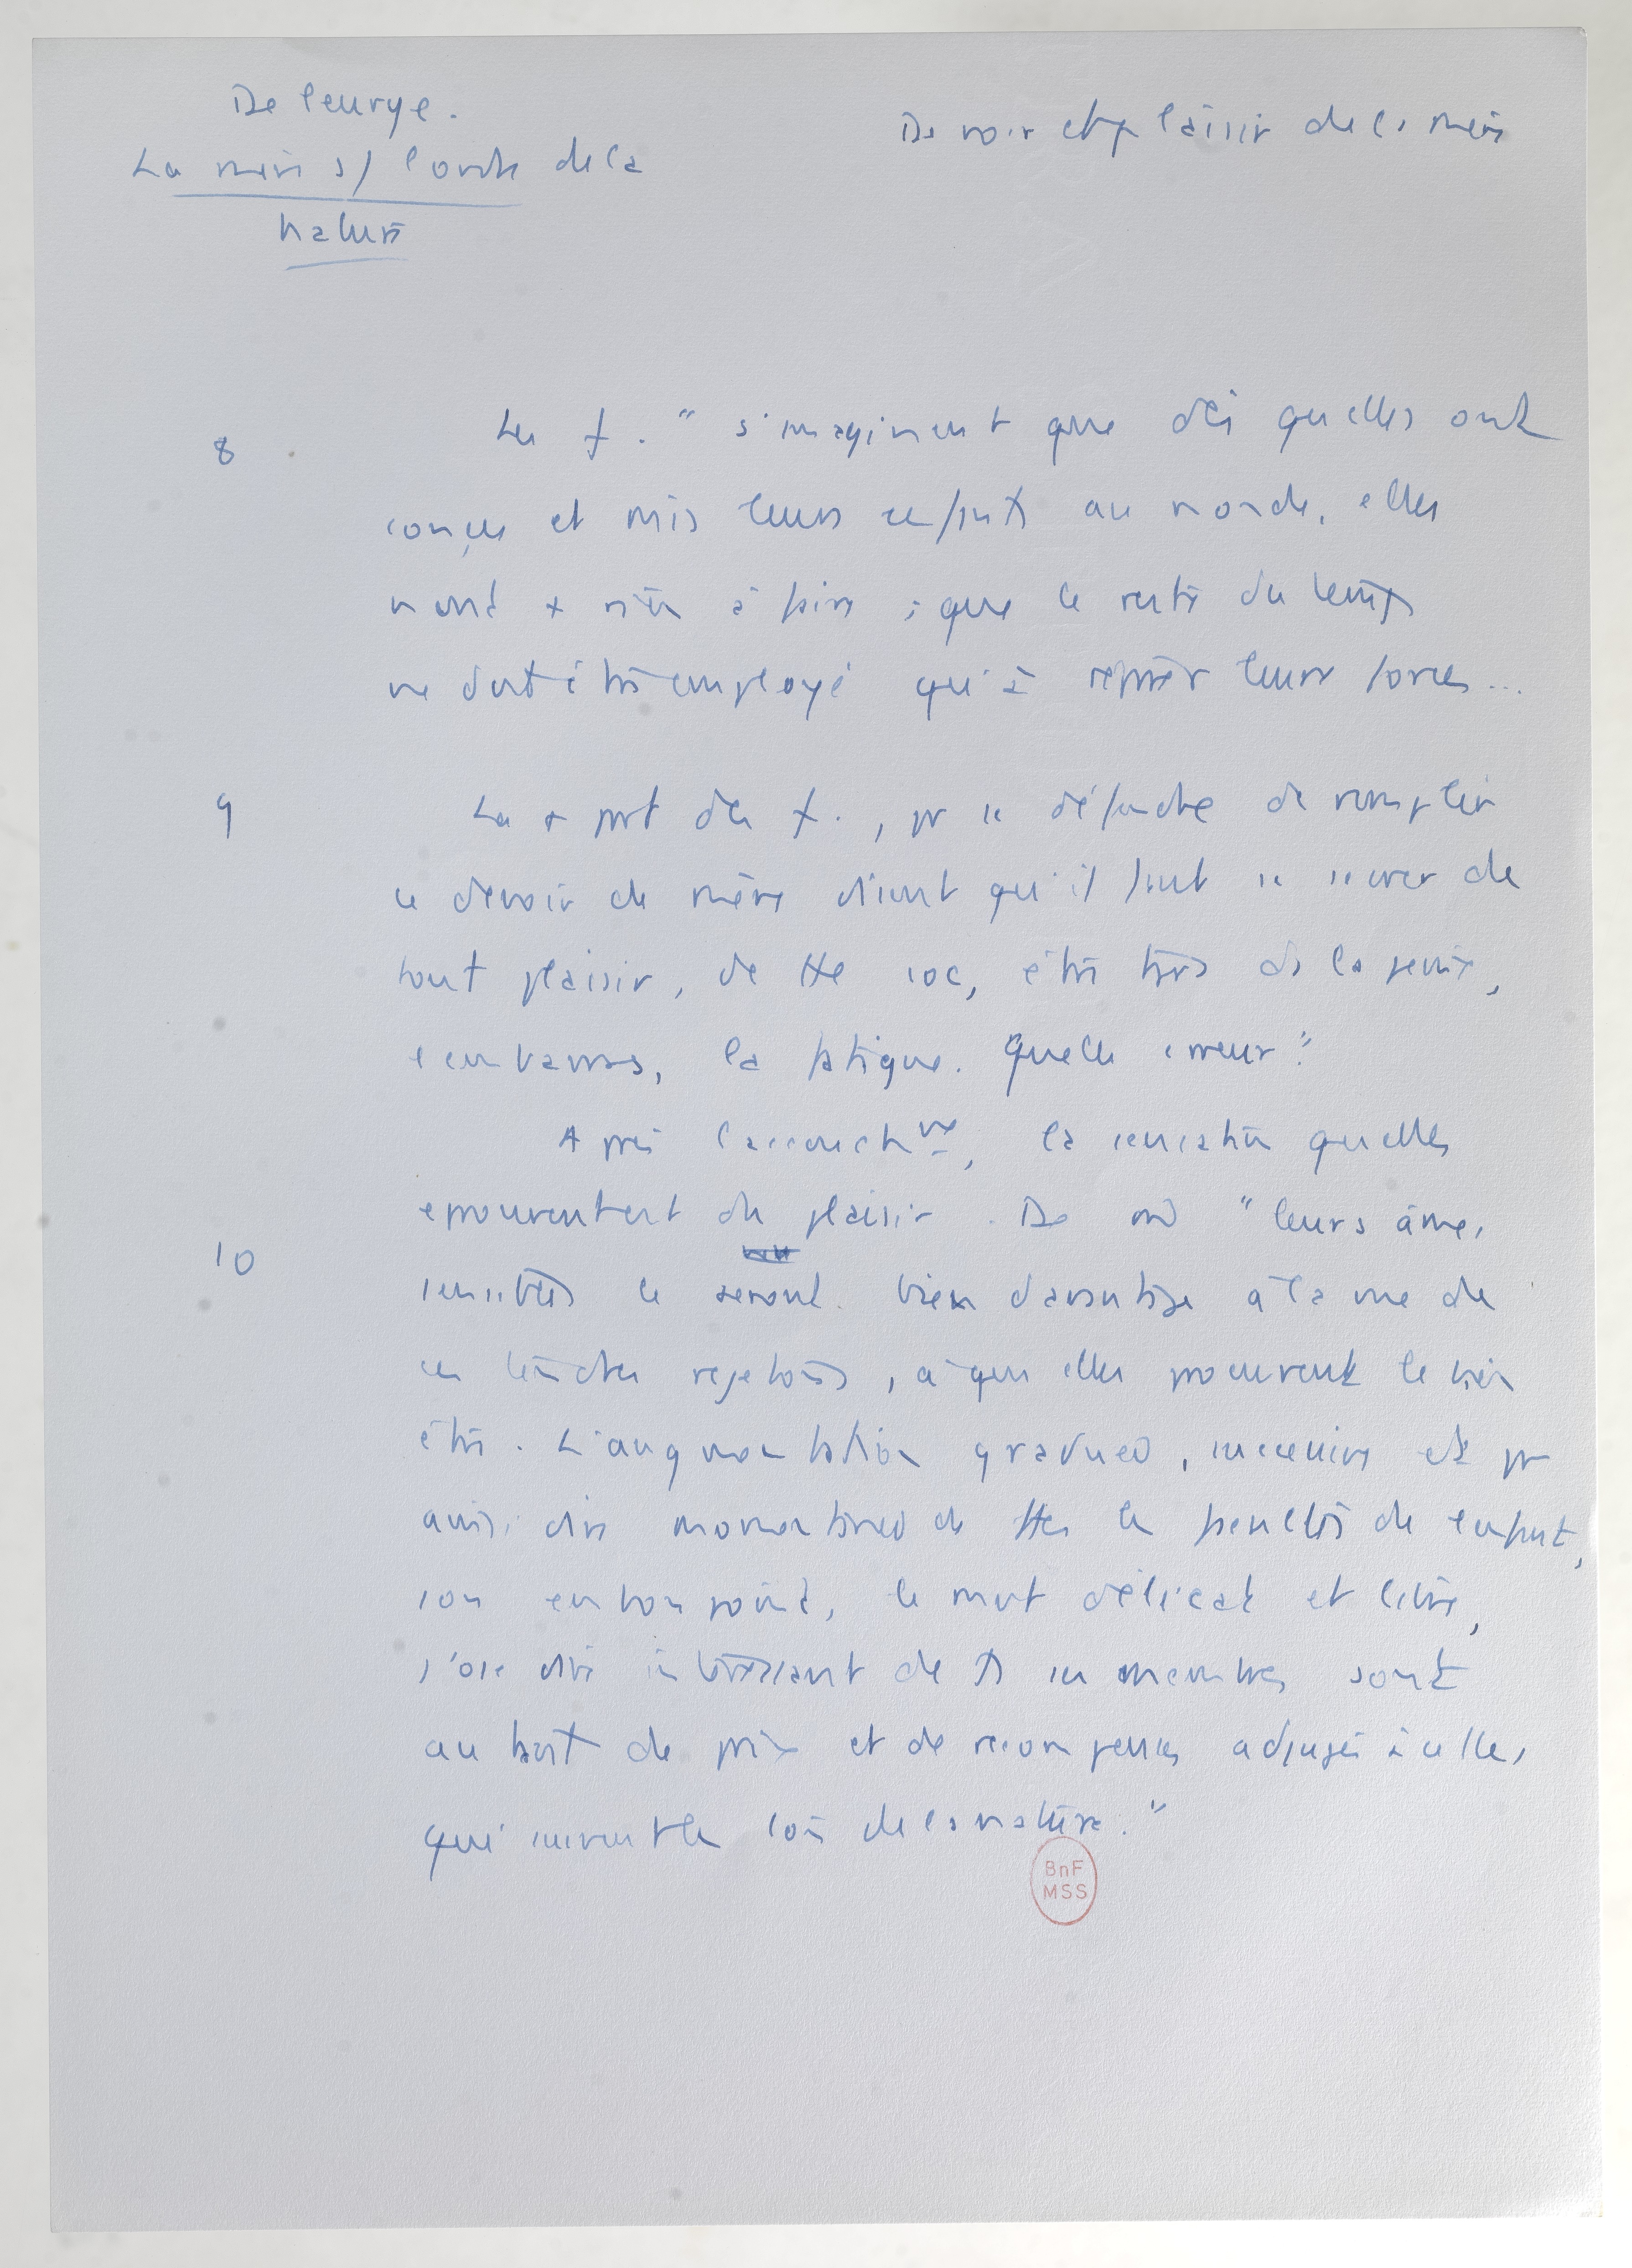 De leurye.
La mère s/ l'ordre de la
nature
Devoir et plaisir de la mère
8
Les f. "s'imaginent que dès qu'elles ont
conçu et mis leurs enfants au monde, elles
n'ont + rien à faire ; que le reste du temps
ne doit être employé qu'à réparer leurs forces...
9
La + part des f., pr se défendre de remplir
ce devoir de mère disent qu'il faut se sevrer de
tout plaisir, de tte soc, être trs ds la peine,
l'embarras, la fatigue. Quelle erreur"
Après l'accouchmt, la sensation qu'elles
éprouvent est du plaisir. De
"leurs âmes
10
sensibles le seront bien davantage à la vue de
ces tendres rejetons, à qui elles procurent le bien
être. L'augmentation graduel, successive et pr
ainsi dire momentanée de ttes les facultés de l'enfant,
son embonpoint, le mvt délicat et libre,
j'ose dire intéressant de ts ses membres sont
autant de prix et de récompenses adjugés à celles
qui suivent les lois de la nature."
BnF
MSS